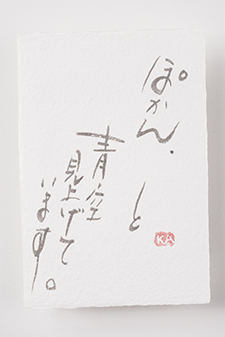 ぽかん、
と
青空
見上げて
います。
KA